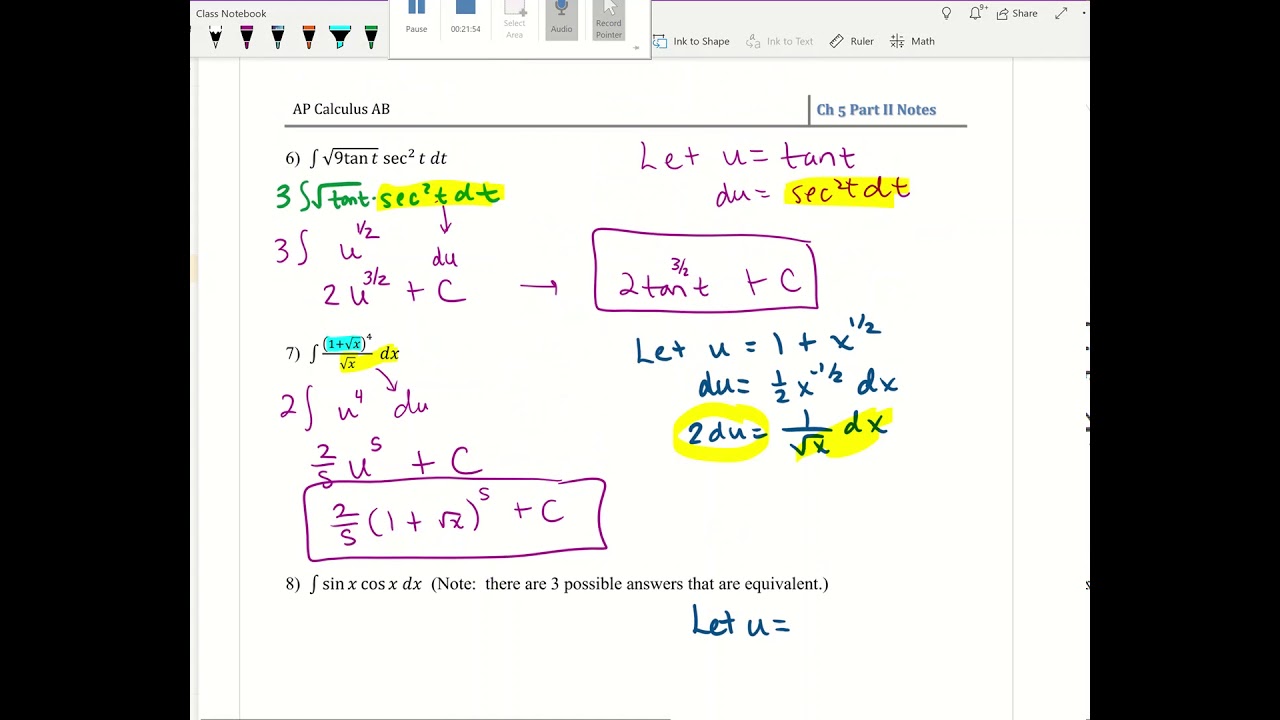 Class Notebook
Pause
00:21:54
Select Area
Audio
Record Pointer
Ink to Shape
Ink to Text
Ruler
Math
9+
Share
AP Calculus AB
Ch 5 Part II Notes
6) ∫ √9tan t sec² t dt
Let u = tant
3∫√tant · sec²t dt
du = sec²t dt
3∫ u^1/2 du
2u^3/2 + C → 2tan^3/2 t + C
7) ∫ (1+√x)⁴/√x dx
Let u = 1 + x^1/2
2∫ u⁴ du
du = 1/2 x^-1/2 dx
2du = 1/√x dx
2/5 u⁵ + C
2/5 (1 + √x)⁵ + C
8) ∫ sin x cos x dx (Note: there are 3 possible answers that are equivalent.)
Let u =